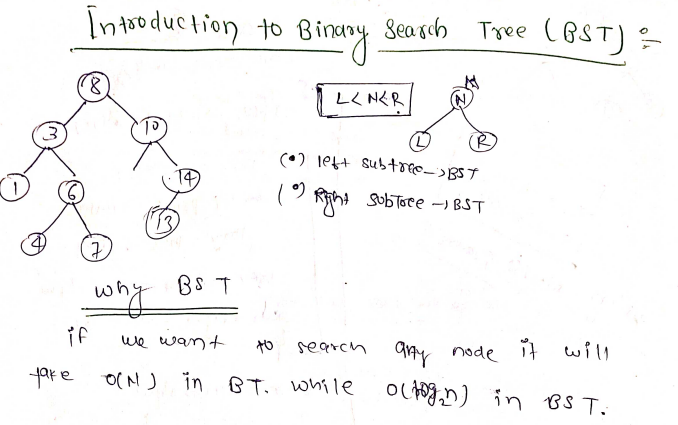 Introduction to Binary Search Tree (BST) :-
8
L<N<R
N
3
10
L
R
(•) left subtree → BST
1
6
14
(•) Right subTree → BST
13
4
7
Why BST
if we want to search any node it will
take O(N) in BT. while O(log₂n) in BST.